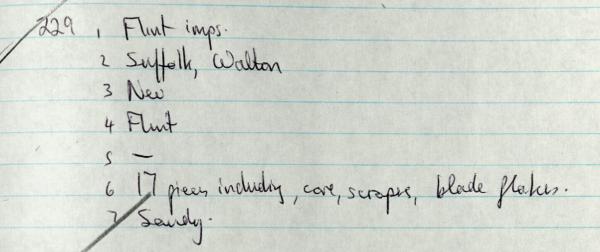 229 1 Flint imps.
2 Suffolk, Walton
3 Neo
4 Flint
5 —
6 17 pieces including, core, scrapers, blade flakes.
7 Sandy.